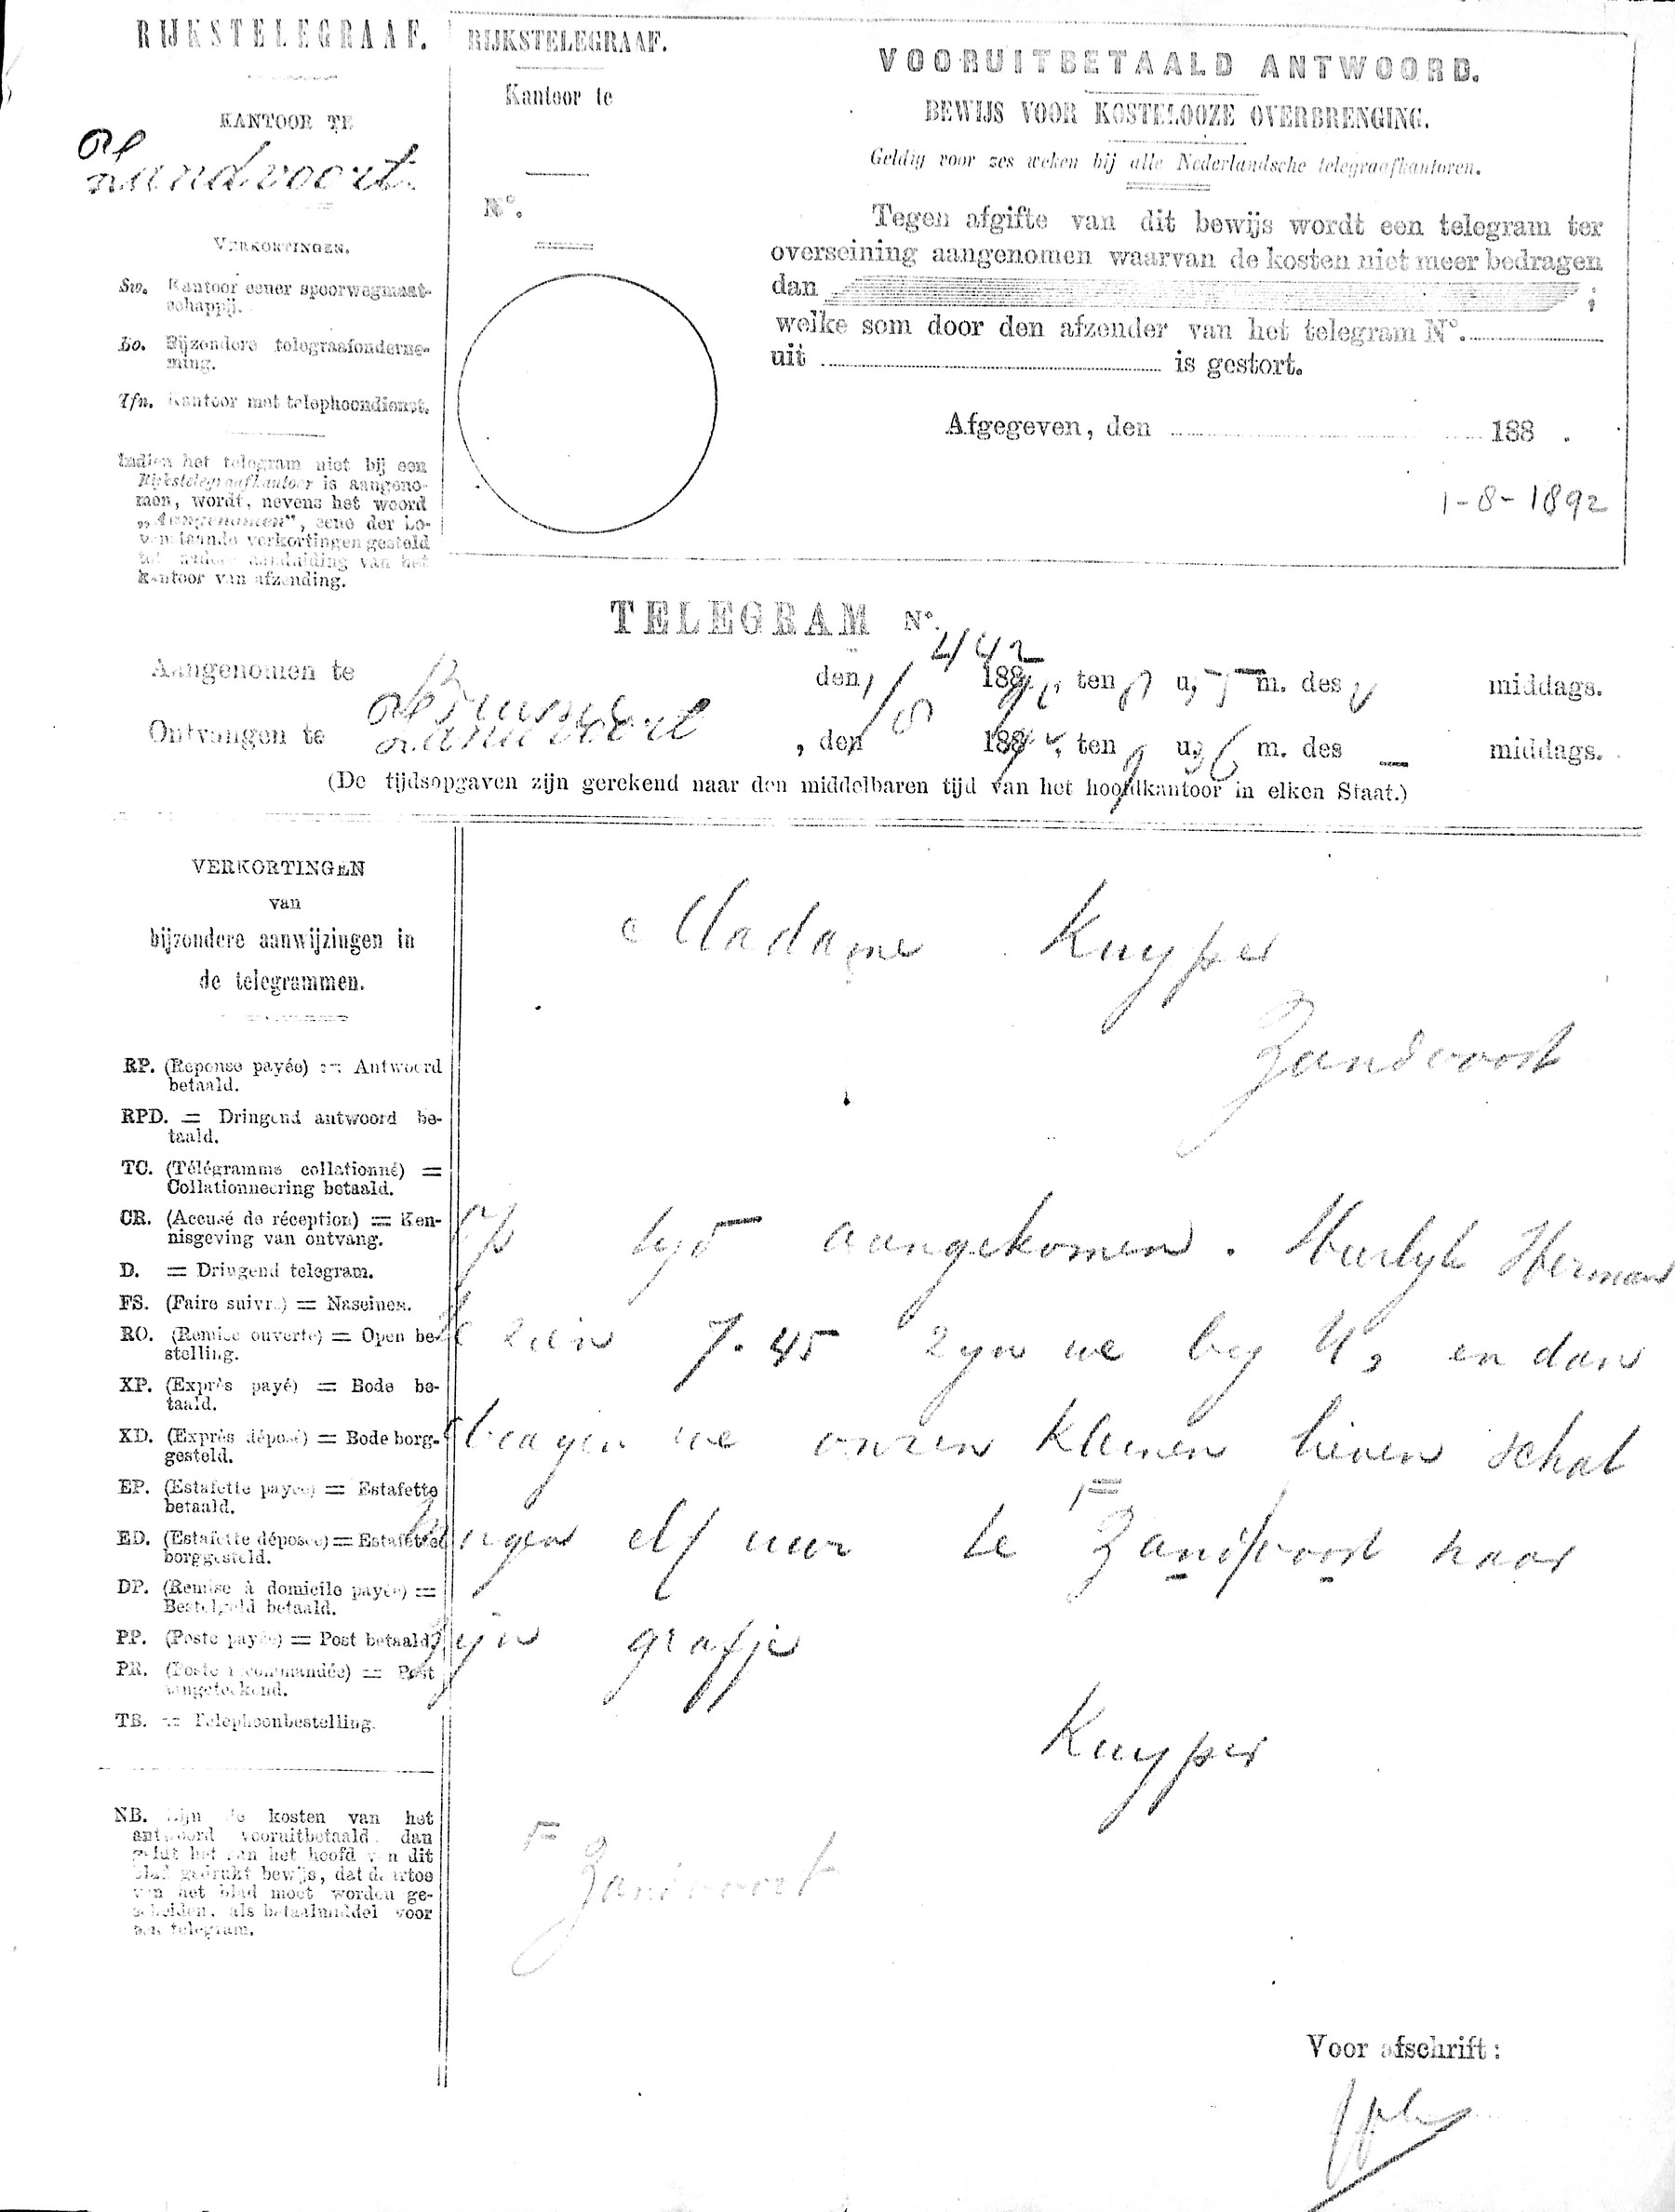 RIJKSTELEGRAAF.
KANTOOR TE
Zandvoort.
VERKORTINGEN.
Sw. Kantoor eener spoorwegmaat-
schappij.
Bo. Bijzondere telegraafonderne-
ming.
Tfn. Kantoor met telephoondienst.
Indien het telegram niet bij een
Rijkstelegraafkantoor is aangeno-
men, wordt, nevens het woord
„Aangenomen", eene der bo-
venstaande verkortingen gesteld
tot nadere aanduiding van het
kantoor van afzending.
RIJKSTELEGRAAF.
Kantoor te
No.
VOORUITBETAALD ANTWOORD.
BEWIJS VOOR KOSTELOOZE OVERBRENGING.
Geldig voor zes weken bij alle Nederlandsche telegraafkantoren.
Tegen afgifte van dit bewijs wordt een telegram ter
overseining aangenomen waarvan de kosten niet meer bedragen
dan ;
welke som door den afzender van het telegram No.
uit is gestort.
Afgegeven, den 188 .
1-8-1892
TELEGRAM No.
442
Aangenomen te den 1/8 188 , ten 8 u. 5 m. des middags.
Ontvangen te Zandvoort , den 188 , ten 9 u. 36 m. des – middags.
(De tijdsopgaven zijn gerekend naar den middelbaren tijd van het hoofdkantoor in elken Staat.)
VERKORTINGEN
van
bijzondere aanwijzingen in
de telegrammen.
RP. (Reponse payée) = Antwoord
betaald.
RPD. = Dringend antwoord be-
taald.
TC. (Télégramme collationné) =
Collationneering betaald.
CR. (Accusé de réception) = Ken-
nisgeving van ontvang.
D. = Dringend telegram.
FS. (Faire suivre) = Naseinen.
RO. (Remise ouverte) = Open be-
stelling.
XP. (Exprès payé) = Bode be-
taald.
XD. (Exprès déposé) = Bode borg-
gesteld.
EP. (Estafette payée) = Estafette
betaald.
ED. (Estafette déposée) = Estafette
borggesteld.
DP. (Remise à domicile payée) =
Bestelgeld betaald.
PP. (Poste payée) = Post betaald.
PR. (Poste recommandée) = Post
aangeteekend.
TB. = Telephoonbestelling.
NB. Zijn de kosten van het
antwoord vooruitbetaald, dan
geldt het aan het hoofd van dit
blad gedrukt bewijs, dat daartoe
van het blad moet worden ge-
scheiden, als betaalmiddel voor
een telegram.
Madame Kuyper
Zandvoort
Op tyd aangekomen. Heerlyk Herman
te zien 7.45 zyn we by U, en dan
dragen we onzen kleinen lieven schat
morgen elf uur te Zandvoort naar
zijn grafje
Kuyper
Zandvoort
Voor afschrift: